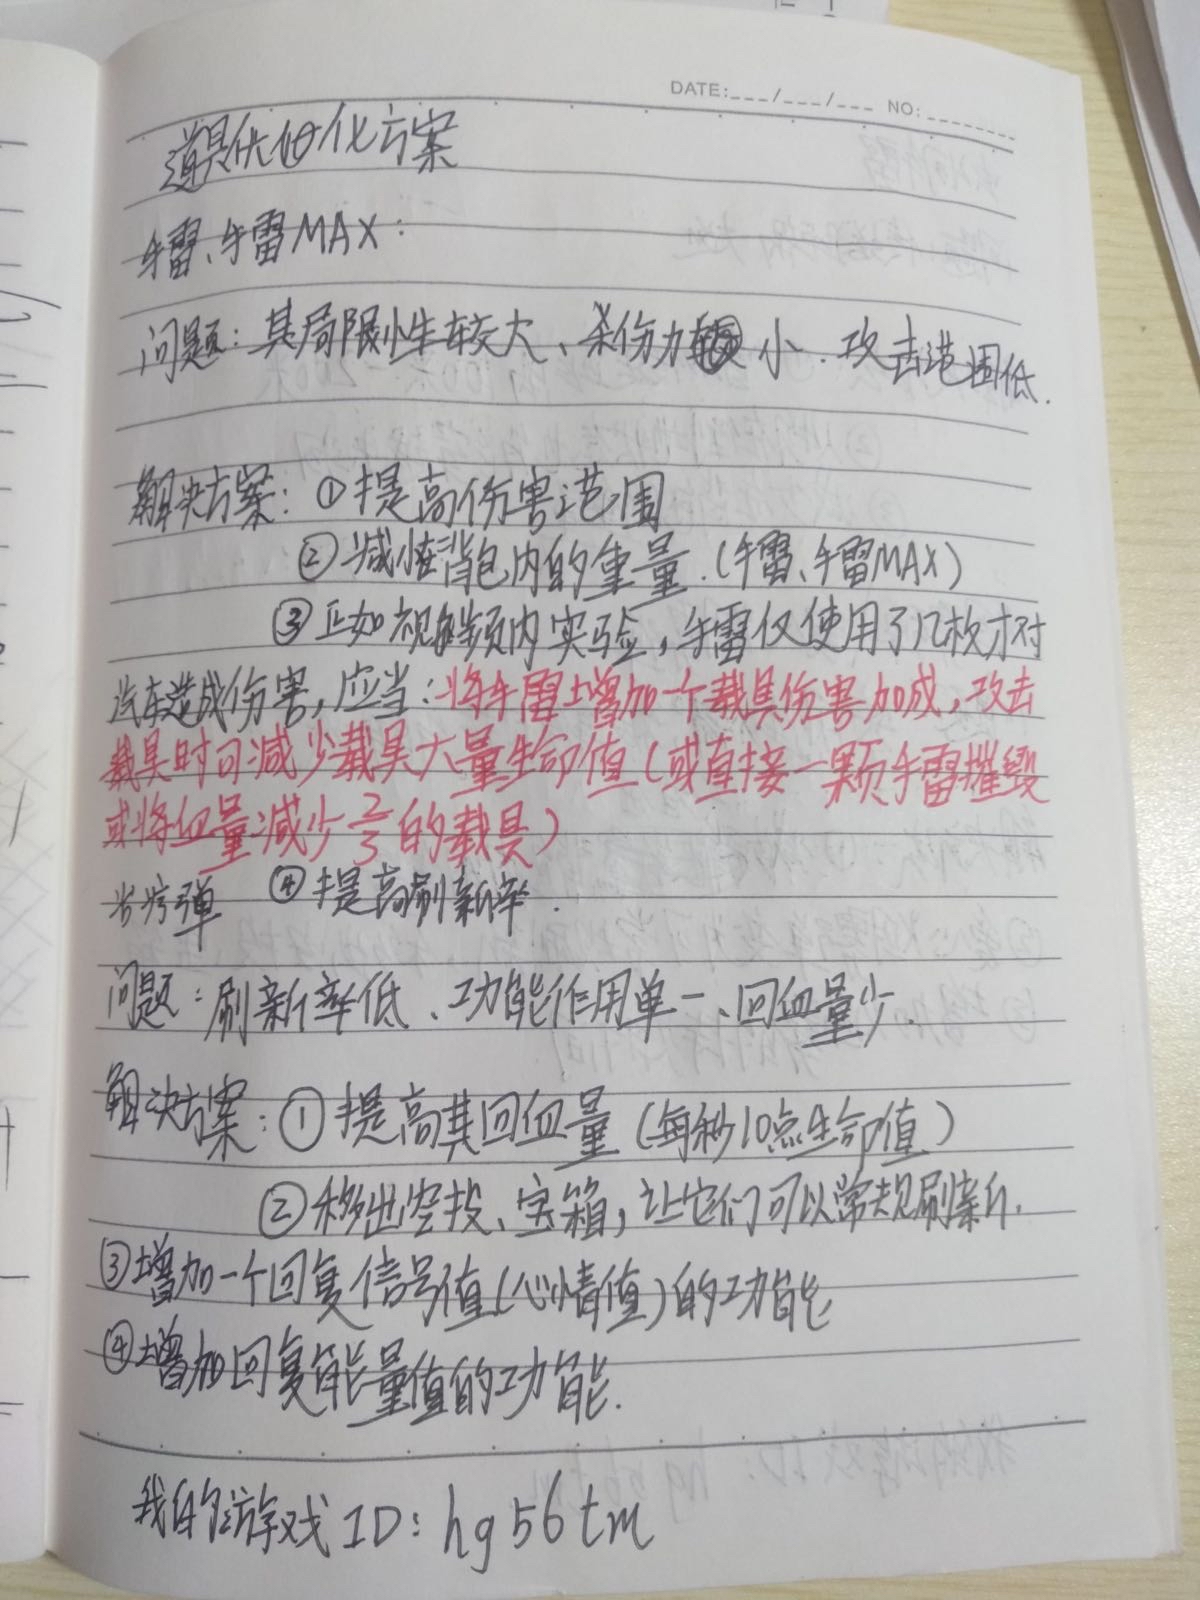 DATE:___/___/___ NO:________
道具优化方案
手雷、手雷MAX：
问题：其局限性较大、杀伤力较小.攻击范围低.
解决方案：①提高伤害范围
②减小在背包内的重量.(手雷、手雷MAX)
③正如视频内实验，手雷仅使用了几枚才对
汽车造成伤害，应当：将手雷增加一个载具伤害加成，攻击
载具时可减少载具大量生命值(或直接一颗手雷摧毁
或将血量减少2/3的载具)
④提高刷新率.
治疗弹
问题：刷新率低、功能作用单一、回血量少.
解决方案：①提高其回血量(每秒10点生命值)
②移出空投、宝箱，让它们可以常规刷新.
③增加一个回复信号值(心情值)的功能
④增加回复能量值的功能.
我的游戏ID：hg56tm